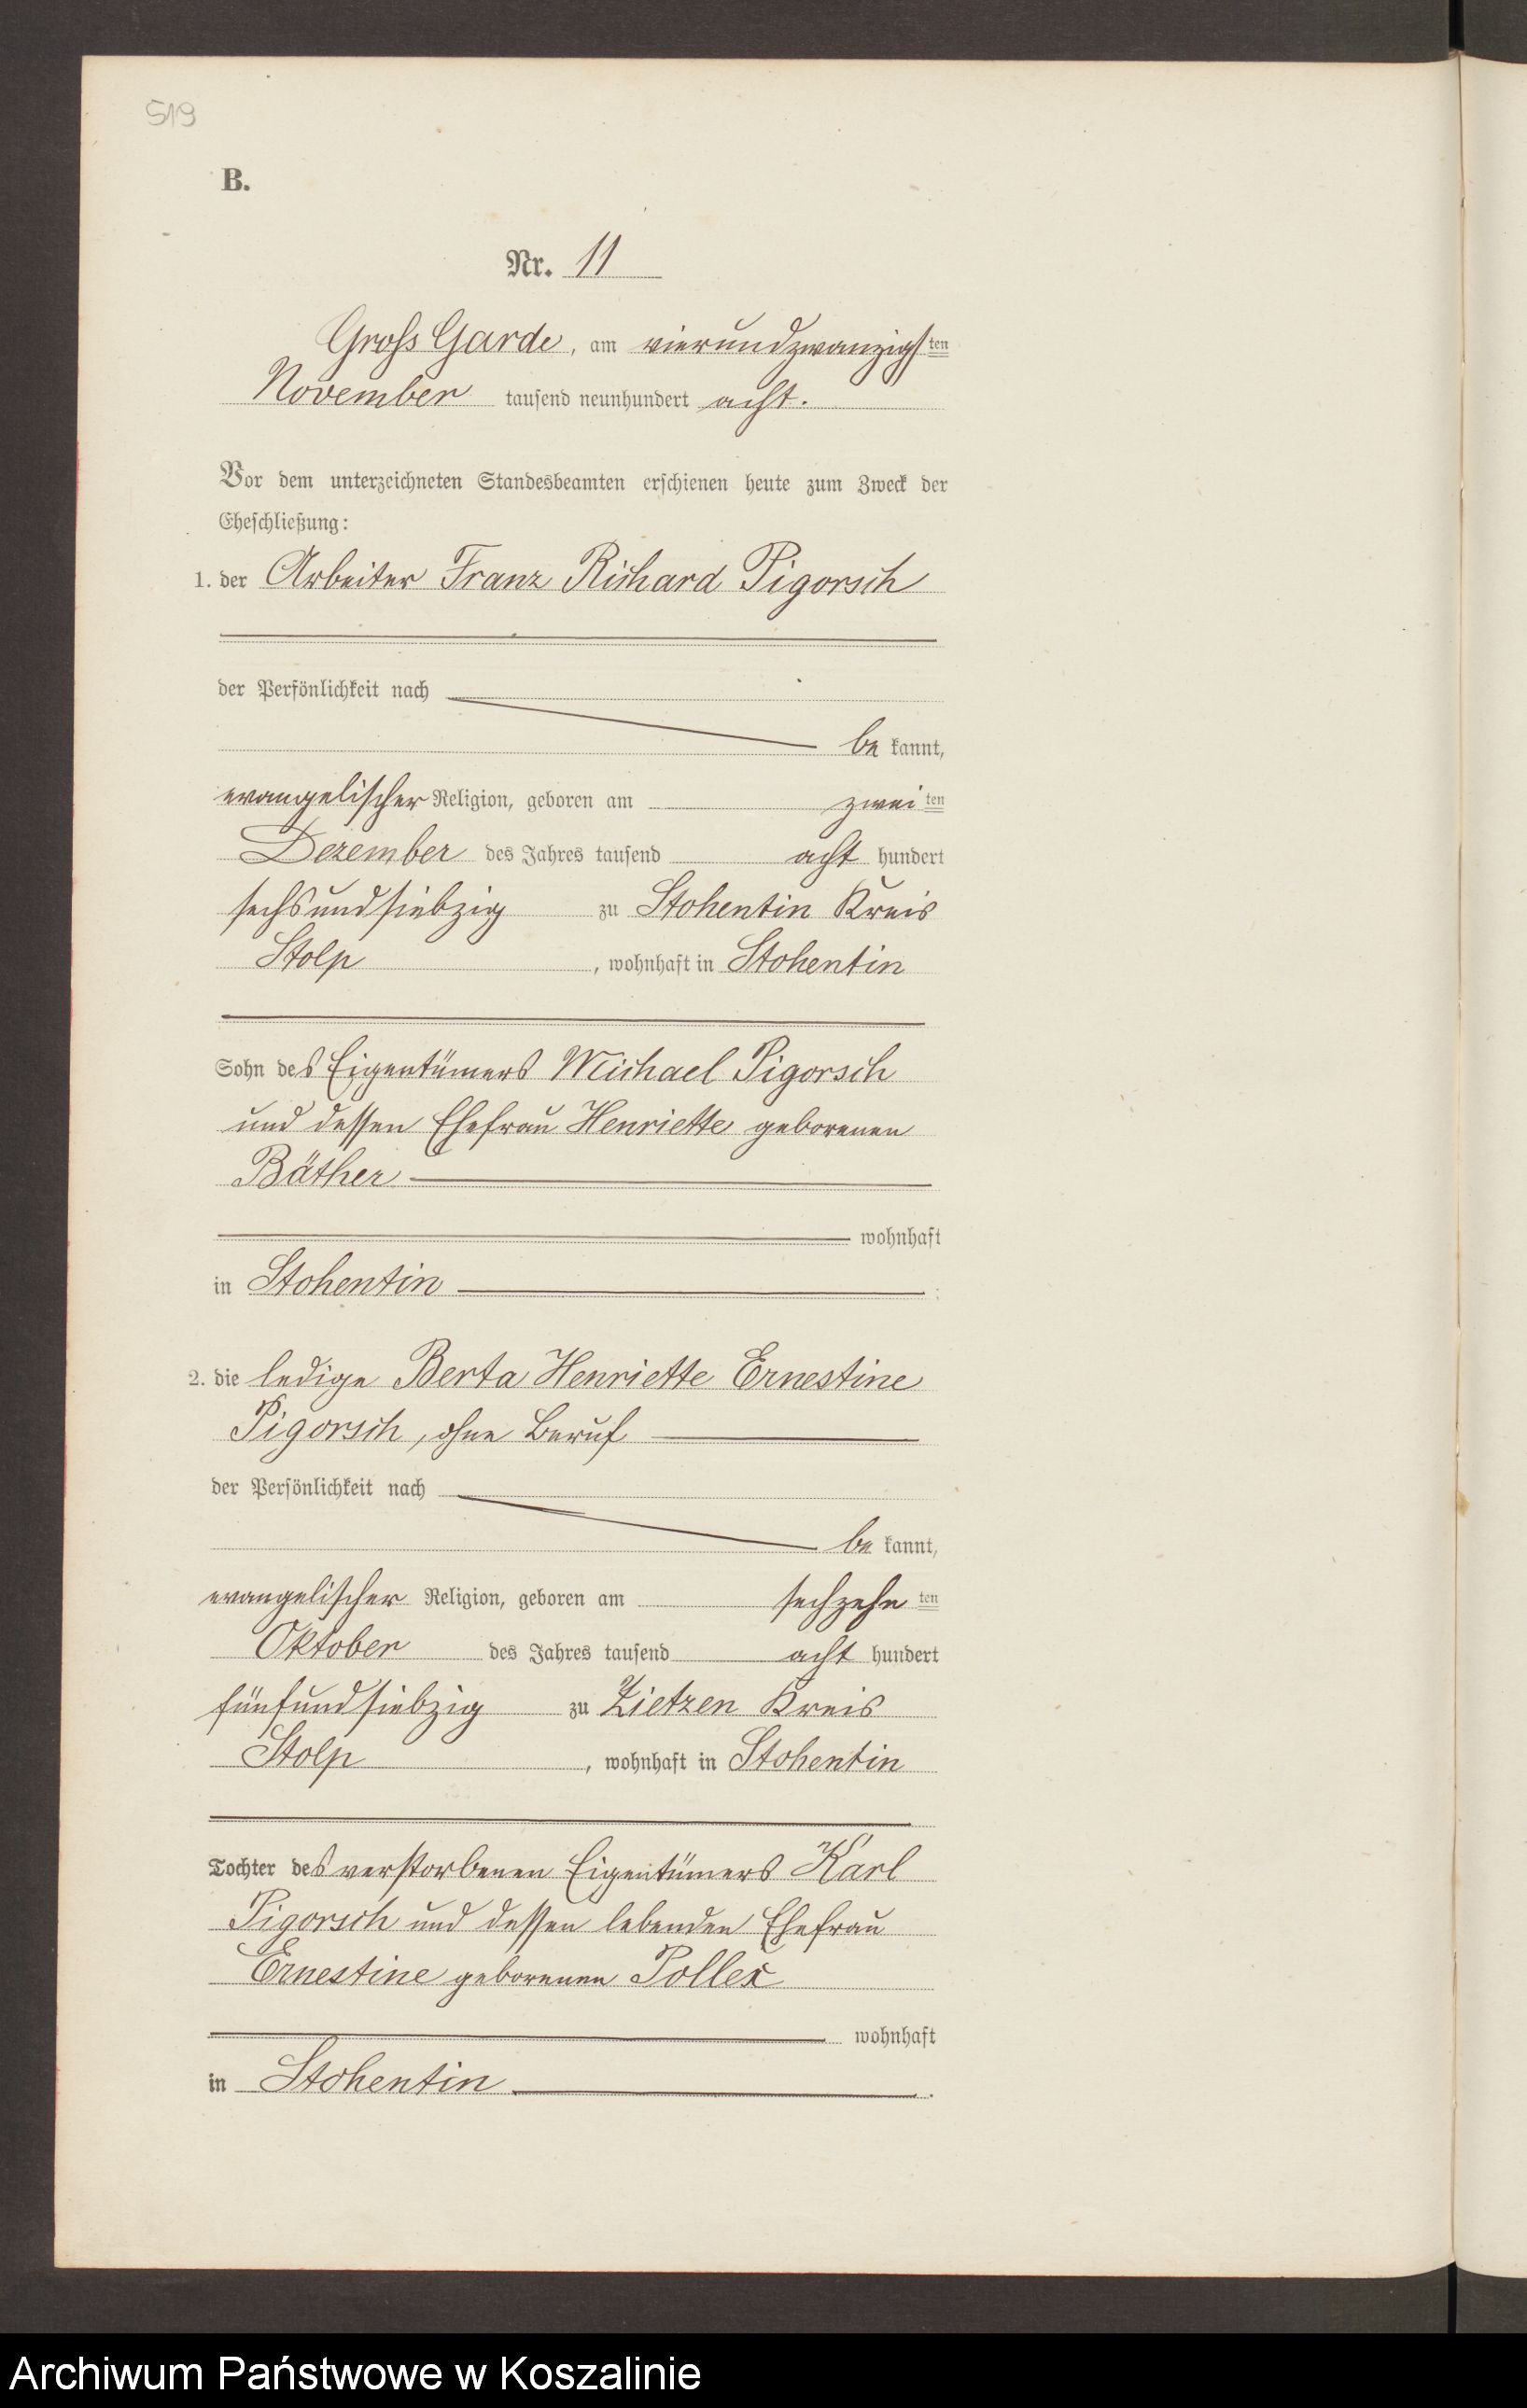 519
B.
Nr. 11
Groß Garde, am vierundzwanzigsten
November tausend neunhundert acht.
Vor dem unterzeichneten Standesbeamten erschienen heute zum Zweck der
Eheschließung:
1. der Arbeiter Franz Richard Pigorsch
der Persönlichkeit nach
bekannt,
evangelischer Religion, geboren am zweiten
Dezember des Jahres tausend acht hundert
sechsundsiebzig zu Stohentin Kreis
Stolp, wohnhaft in Stohentin
Sohn des Eigentümers Michael Pigorsch
und dessen Ehefrau Henriette geborenen
Bäther
wohnhaft
in Stohentin
2. die ledige Berta Henriette Ernestine
Pigorsch, ohne Beruf
der Persönlichkeit nach
bekannt,
evangelischer Religion, geboren am sechzehnten
Oktober des Jahres tausend acht hundert
fünfundsiebzig zu Zietzen Kreis
Stolp, wohnhaft in Stohentin
Tochter des verstorbenen Eigentümers Karl
Pigorsch und dessen lebenden Ehefrau
Ernestine geborenen Pollex
wohnhaft
in Stohentin.
Archiwum Państwowe w Koszalinie